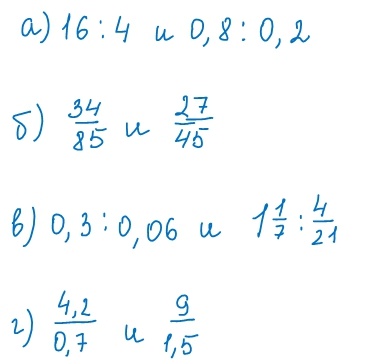 а) 16 : 4 и 0,8 : 0,2
б) 34/85 и 27/45
в) 0,3 : 0,06 и 1 1/7 : 4/21
г) 4,2/0,7 и 9/1,5